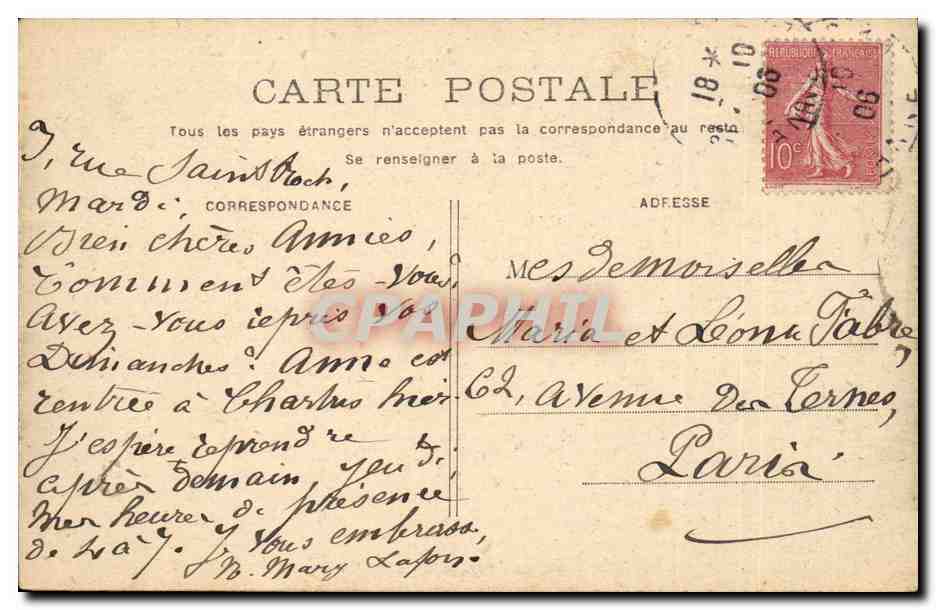 CARTE POSTALE
Tous les pays étrangers n'acceptent pas la correspondance au
Se renseigner à la poste.
CORRESPONDANCE
ADRESSE
REPUBLIQUE FRANÇAISE
10c
18 * 10
06
10
06
CPAPHIL
7, rue Saint Roch,
Mardi,
Bien chères Amies,
Comment êtes-vous?
Avez-vous repris vos
Dimanches? Anne est
rentrée à Chartres hier.
J'espère reprendre
après demain jeudi
mes heures de présence
de 4 à 7. Je vous embrasse,
Mary
Mesdemoiselles
Maria et Léonie Fabre,
62, avenue des Ternes,
Paris.